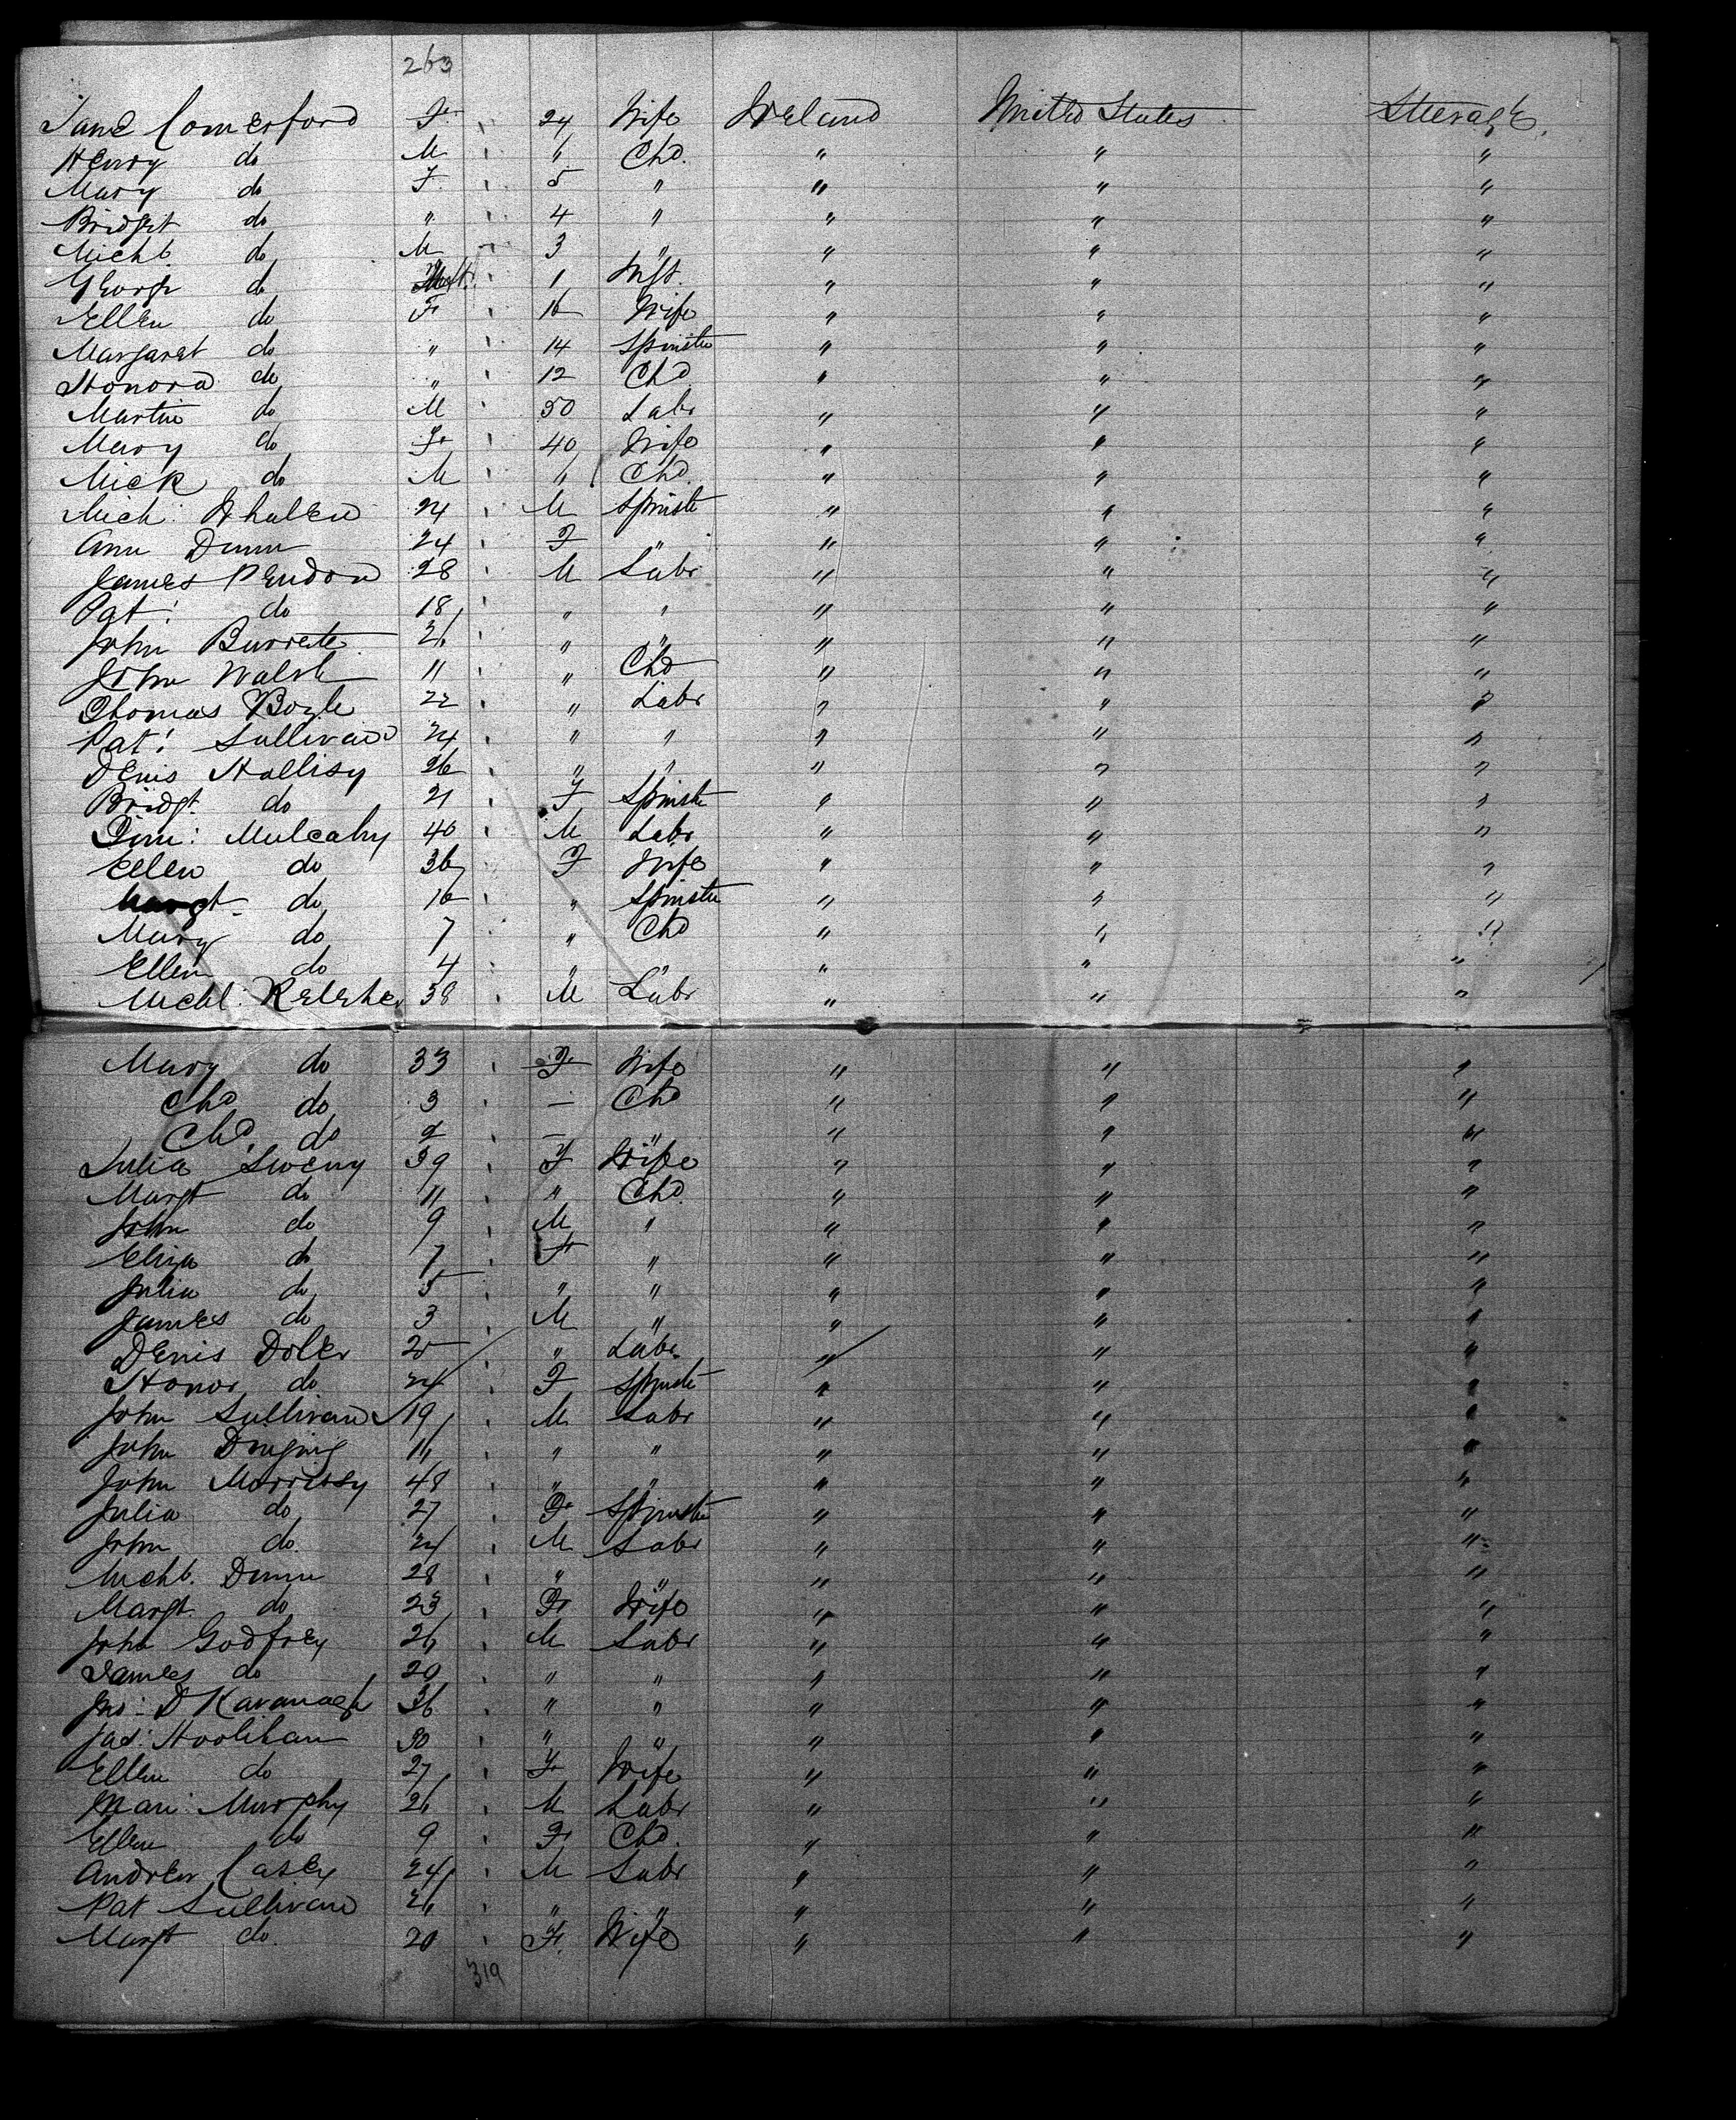 263
Jane Comerford F 24 Wife Ireland United States Steerage
Henry do M " Chd. " " "
Mary do F 5 " " " "
Bridget do " 4 " " " "
Michl do M 3 " " " "
George do 1 Inft. " " "
Ellen do F 16 Wife " " "
Margaret do " 14 Spinster " " "
Honora do " 12 Chd " " "
Martin do M 50 Labr " " "
Mary do F 40 Wife " " "
Mick do M " Chd. " " "
Mich: Whalen 24 M Spinstr " " "
Ann Dunn 24 F " " " "
James Rendon 28 M Labr " " "
Pat: do 18 " " " " "
John Burrete 26 " " " " "
John Walsh 11 " Chd " " "
Thomas Boyle 22 " Labr " " "
Pat: Sullivan 24 " " " " "
Denis Hallisy 26 " " " " "
Bridgt. do 21 F Spinstr " " "
Tim: Mulcahy 40 M Labr " " "
Ellen do 36 F Wife " " "
Margt do 16 " Spinster " " "
Mary do 7 " Chd " " "
Ellen do 4 " " " " "
Michl: Keleher 38 M Labr " " "
Mary do 33 F Wife " " "
Chd do 3 — Chd " " "
Chd. do 2 — " " " "
Julia Sweeny 39 F Wife " " "
Margt do 11 " Chd. " " "
John do 9 M " " " "
Eliza do 7 F " " " "
Julia do 5 " " " " "
James do 3 M " " " "
Denis Doler 25 " Labr. " " "
Honor do 24 F Spinstr " " "
John Sullivan 19 M Labr " " "
John 16 " " " " "
John Morrissy 48 " " " " "
Julia do 27 F Spinster " " "
John do. 24 M Labr " " "
Michl. Dunn 28 " " " " "
Margt. do 23 F Wife " " "
John Godfrey 26 M Labr " " "
James do 20 " " " " "
Jno: D Kavanagh 36 " " " " "
Jas: Hoolihan 30 " " " " "
Ellen do 27 F Wife " " "
Murphy 26 M Labr " " "
Ellen do 9 F Chd. " " "
Andrew Casey 24 M Labr " " "
Pat Sullivan 26 " " " " "
Margt do. 20 F. Wife " " "
319